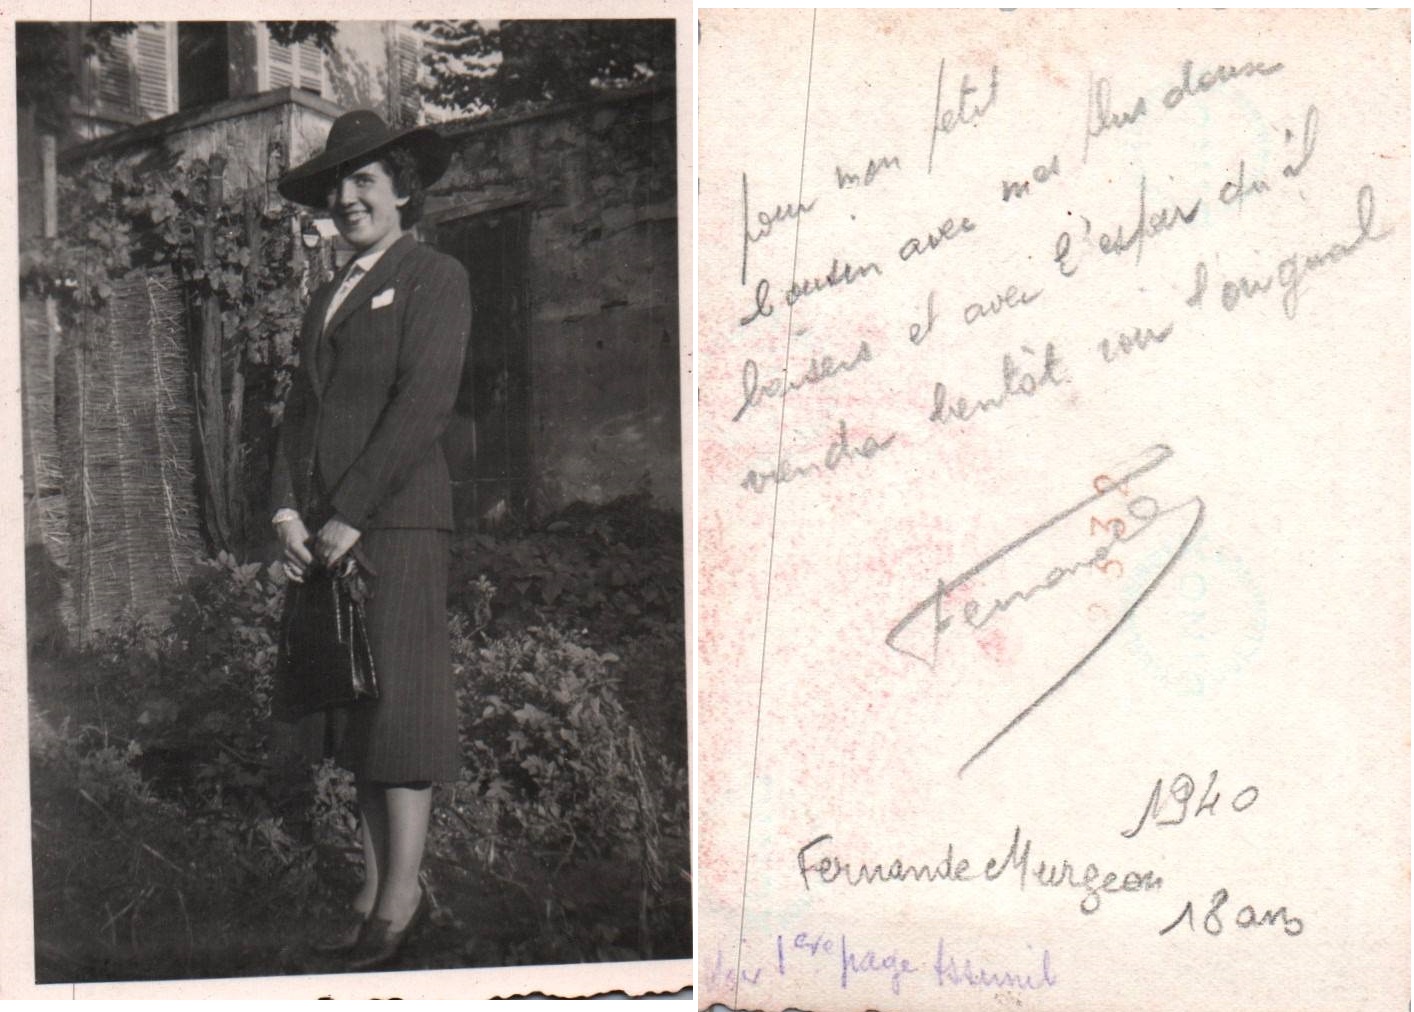 pour mon petit
cousin avec mes plus doux
baisers et avec l'espoir qu'il
viendra bientôt voir l'original
Fernande
332
1940
Fernande Murgeon
18 ans
Voir 1ere page